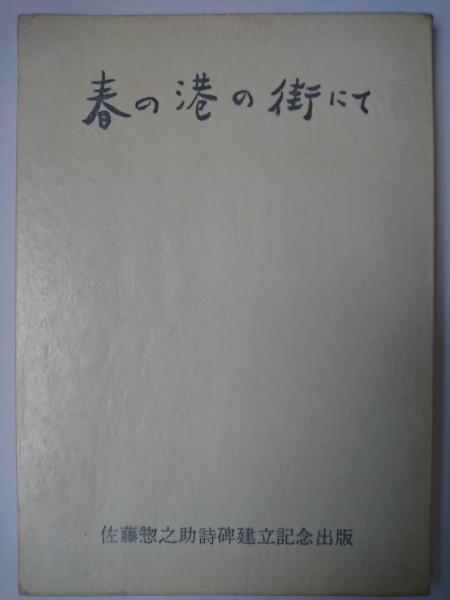 春の港の街にて
佐藤惣之助詩碑建立記念出版